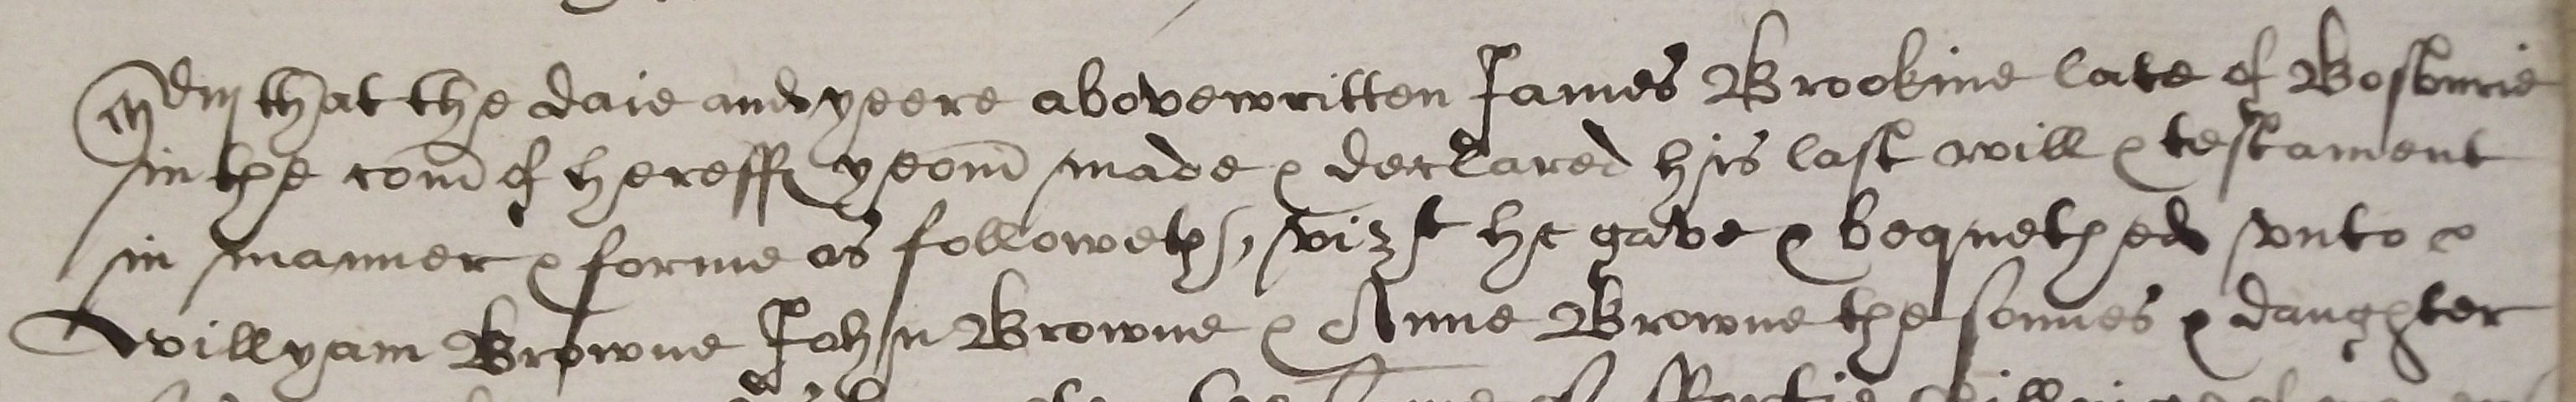 Mdm that the daie and yeere abovewritten James Brookine late of Bosburie
in the com of hereff yeom made & declared his last will & testament
in manner & forme as followeth, vizt he gave & bequethed unto
Willyam Browne John Browne & Anne Browne the sonnes & daughter